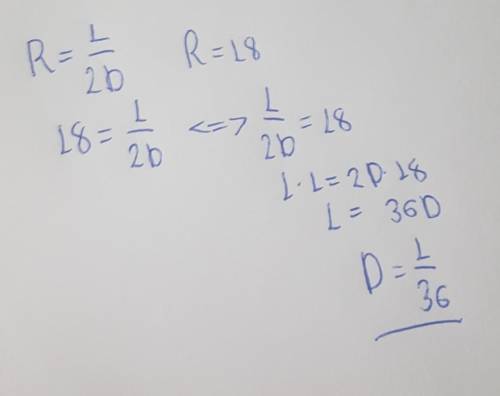 R = 1/2D   R = 18
18 = 1/2D <=> 1/2D = 18
1·1 = 2D·18
1 = 36D
D = 1/36